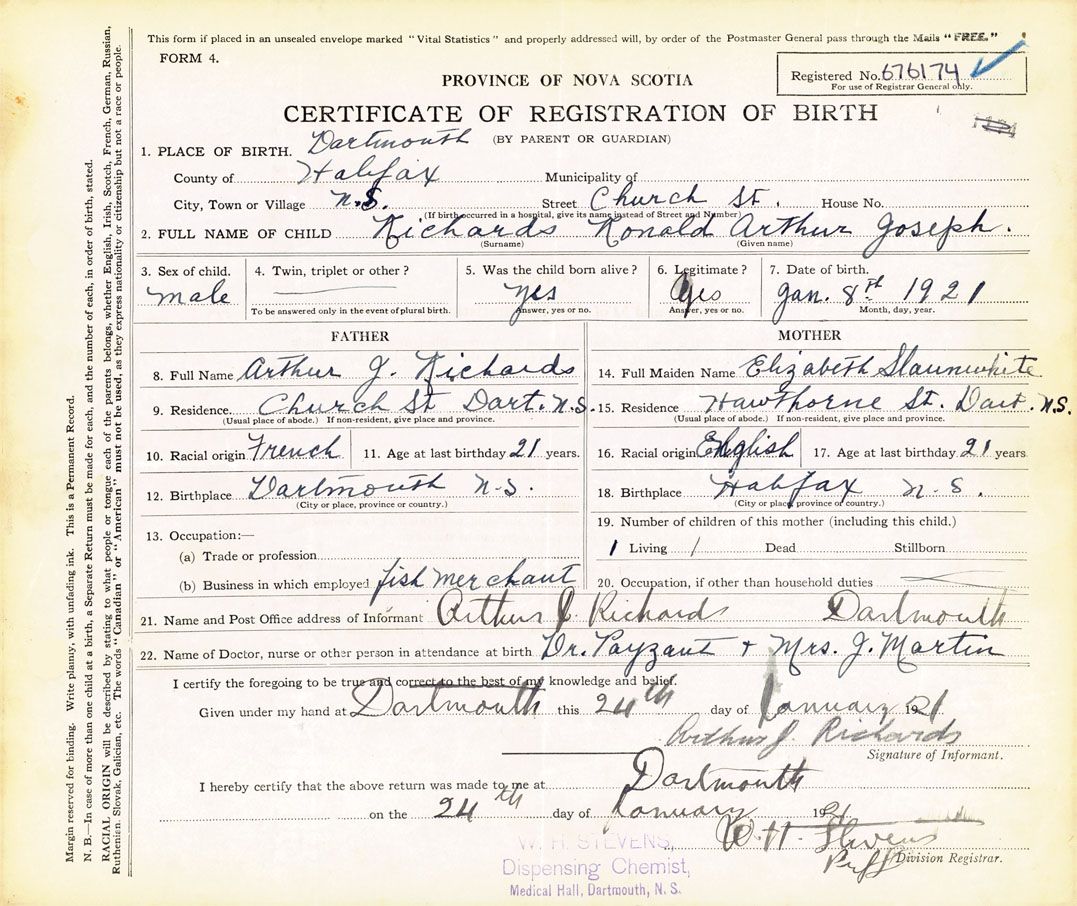 This form if placed in an unsealed envelope marked "Vital Statistics" and properly addressed will, by order of the Postmaster General pass through the Mails "FREE."
FORM 4.
Registered No. 676174
For use of Registrar General only.
PROVINCE OF NOVA SCOTIA
CERTIFICATE OF REGISTRATION OF BIRTH
(BY PARENT OR GUARDIAN)
1. PLACE OF BIRTH. Dartmouth
County of Halifax Municipality of
City, Town or Village N.S. Street Church St. House No.
(If birth occurred in a hospital, give its name instead of Street and Number)
2. FULL NAME OF CHILD Richards Ronald Arthur Joseph.
(Surname) (Given name)
3. Sex of child. 4. Twin, triplet or other? 5. Was the child born alive? 6. Legitimate? 7. Date of birth.
male yes Yes Jan. 8th 1921
To be answered only in the event of plural birth. Answer, yes or no. Answer, yes or no. Month, day, year.
FATHER
8. Full Name Arthur J. Richards
9. Residence. Church St Dart. N.S.
(Usual place of abode.) If non-resident, give place and province.
10. Racial origin French 11. Age at last birthday 21 years.
12. Birthplace Dartmouth N.S.
(City or place, province or country.)
13. Occupation:—
(a) Trade or profession
(b) Business in which employed fish merchant
MOTHER
14. Full Maiden Name Elizabeth Slaunwhite
15. Residence Hawthorne St. Dart. N.S.
(Usual place of abode.) If non-resident, give place and province.
16. Racial origin English 17. Age at last birthday 21 years
18. Birthplace Halifax N.S.
(City or place, province or country.)
19. Number of children of this mother (including this child.)
1 Living 1 Dead Stillborn
20. Occupation, if other than household duties
21. Name and Post Office address of Informant Arthur J. Richards Dartmouth
22. Name of Doctor, nurse or other person in attendance at birth Dr. Payzant + Mrs. J. Martin
I certify the foregoing to be true and correct to the best of my knowledge and belief.
Given under my hand at Dartmouth this 24th day of January 1921
Arthur J. Richards
Signature of Informant.
I hereby certify that the above return was made to me at Dartmouth
on the 24th day of January 1921
W. H. Stevens
Division Registrar.
W. H. STEVENS,
Dispensing Chemist,
Medical Hall, Dartmouth, N. S.
Margin reserved for binding. Write plainly, with unfading ink. This is a Permanent Record.
N. B.—In case of more than one child at a birth, a Separate Return must be made for each, and the number of each, in order of birth, stated.
RACIAL ORIGIN will be described by stating to what people or tongue each of the parents belongs, whether English, Irish, Scotch, French, German, Russian,
Ruthenian, Slovak, Galician, etc. The words "Canadian" or "American" must not be used, as they express nationality or citizenship but not a race or people.